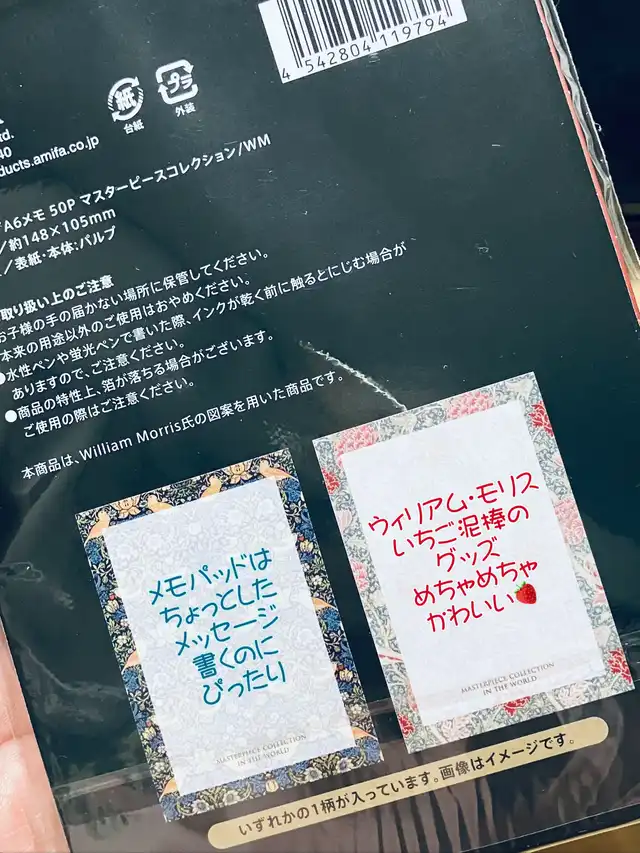 4 542804 119794
紙
台紙
プラ
外装
td.
40
ducts.amifa.co.jp
A6メモ 50P マスターピースコレクション/WM
/約148×105mm
/表紙・本体:パルプ
取り扱い上のご注意
お子様の手の届かない場所に保管してください。
本来の用途以外のご使用はおやめください。
●水性ペンや蛍光ペンで書いた際、インクが乾く前に触るとにじむ場合が
ありますので、ご注意ください。
●商品の特性上、箔が落ちる場合がございます。
ご使用の際はご注意ください。
本商品は、William Morris氏の図案を用いた商品です。
メモパッドは
ちょっとした
メッセージ
書くのに
ぴったり
MASTERPIECE COLLECTION
IN THE WORLD
ウィリアム・モリス
いちご泥棒の
グッズ
めちゃめちゃ
かわいい🍓
MASTERPIECE COLLECTION
IN THE WORLD
いずれかの1柄が入っています。画像はイメージです。